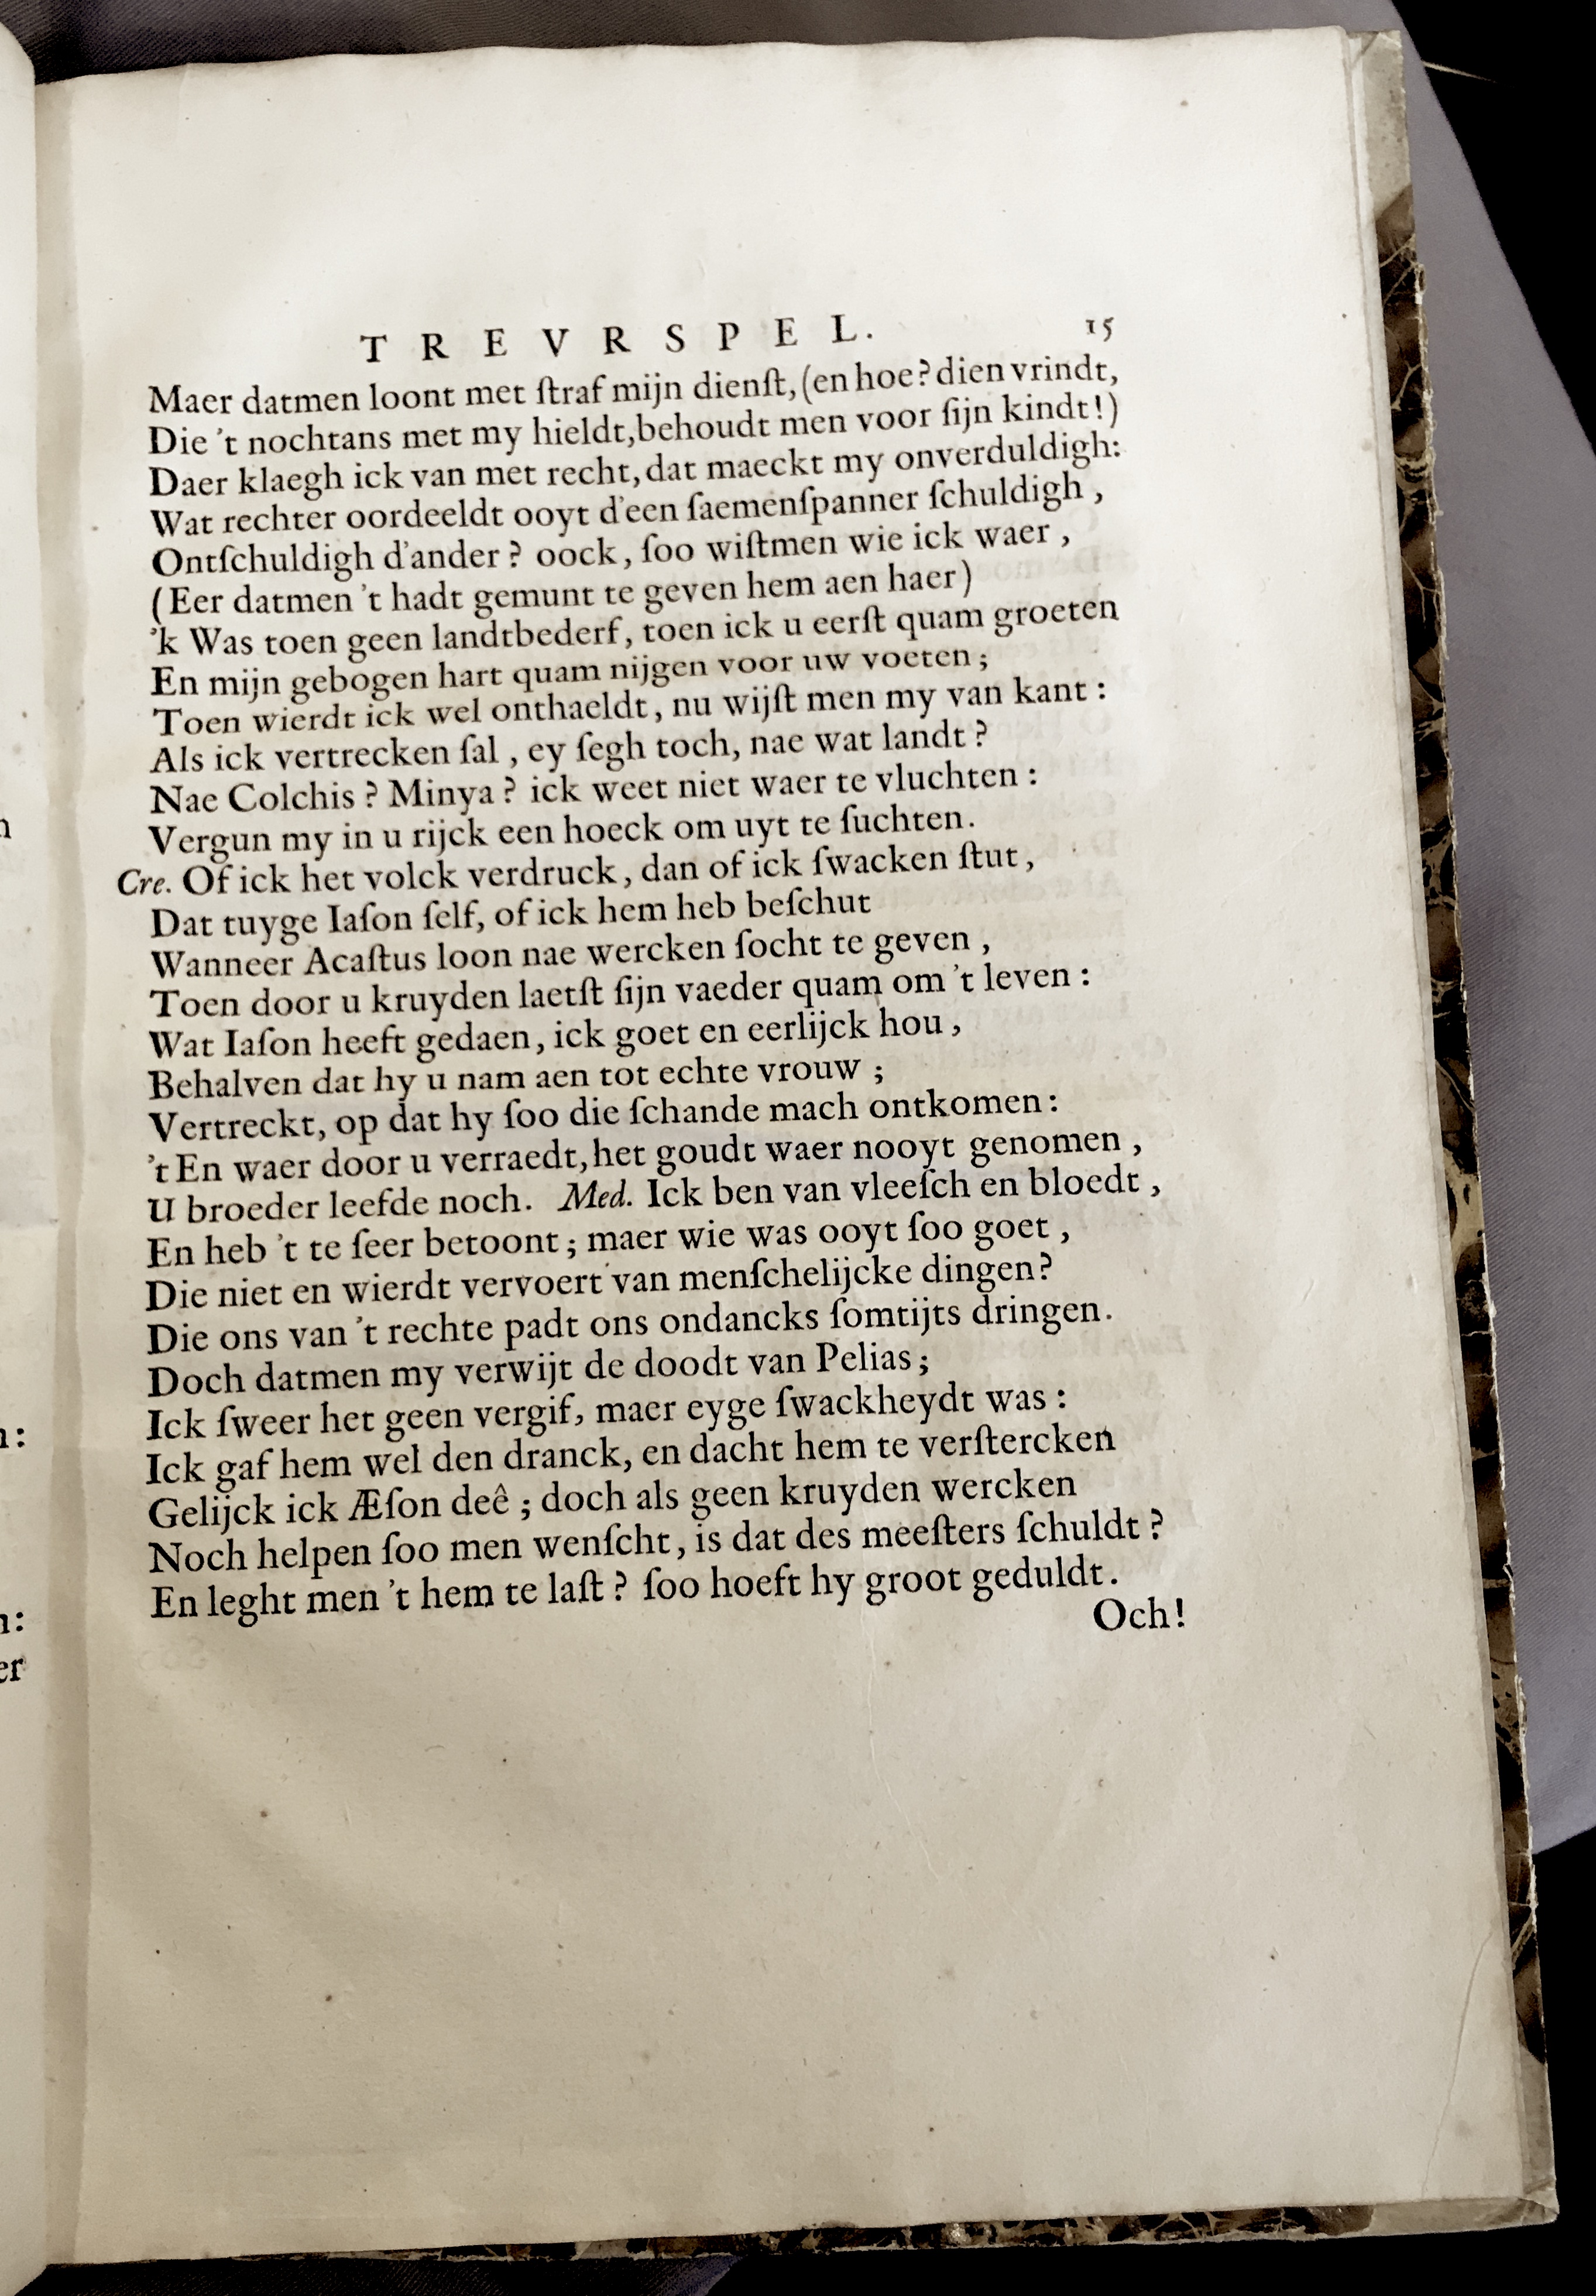 TREVRSPEL. 15
Maer datmen loont met ſtraf mijn dienſt, (en hoe? dien vrindt,
Die 't nochtans met my hieldt, behoudt men voor ſijn kindt!)
Daer klaegh ick van met recht, dat maeckt my onverduldigh:
Wat rechter oordeeldt ooyt d'een ſaemenſpanner ſchuldigh,
Ontſchuldigh d'ander? oock, ſoo wiſtmen wie ick waer,
(Eer datmen 't hadt gemunt te geven hem aen haer)
'k Was toen geen landtbederf, toen ick u eerſt quam groeten
En mijn gebogen hart quam nijgen voor uw voeten;
Toen wierdt ick wel onthaeldt, nu wijſt men my van kant:
Als ick vertrecken ſal, ey ſegh toch, nae wat landt?
Nae Colchis? Minya? ick weet niet waer te vluchten:
Vergun my in u rijck een hoeck om uyt te ſuchten.
Cre. Of ick het volck verdruck, dan of ick ſwacken ſtut,
Dat tuyge Iaſon ſelf, of ick hem heb beſchut
Wanneer Acaſtus loon nae wercken ſocht te geven,
Toen door u kruyden laetſt ſijn vaeder quam om 't leven:
Wat Iaſon heeft gedaen, ick goet en eerlijck hou,
Behalven dat hy u nam aen tot echte vrouw;
Vertreckt, op dat hy ſoo die ſchande mach ontkomen:
't En waer door u verraedt, het goudt waer nooyt genomen,
U broeder leefde noch. Med. Ick ben van vleeſch en bloedt,
En heb 't te ſeer betoont; maer wie was ooyt ſoo goet,
Die niet en wierdt vervoert van menſchelijcke dingen?
Die ons van 't rechte padt ons ondancks ſomtijts dringen.
Doch datmen my verwijt de doodt van Pelias;
Ick ſweer het geen vergif, maer eyge ſwackheydt was:
Ick gaf hem wel den dranck, en dacht hem te verſtercken
Gelijck ick Æſon deê; doch als geen kruyden wercken
Noch helpen ſoo men wenſcht, is dat des meeſters ſchuldt?
En leght men 't hem te laſt? ſoo hoeft hy groot geduldt.
Och!